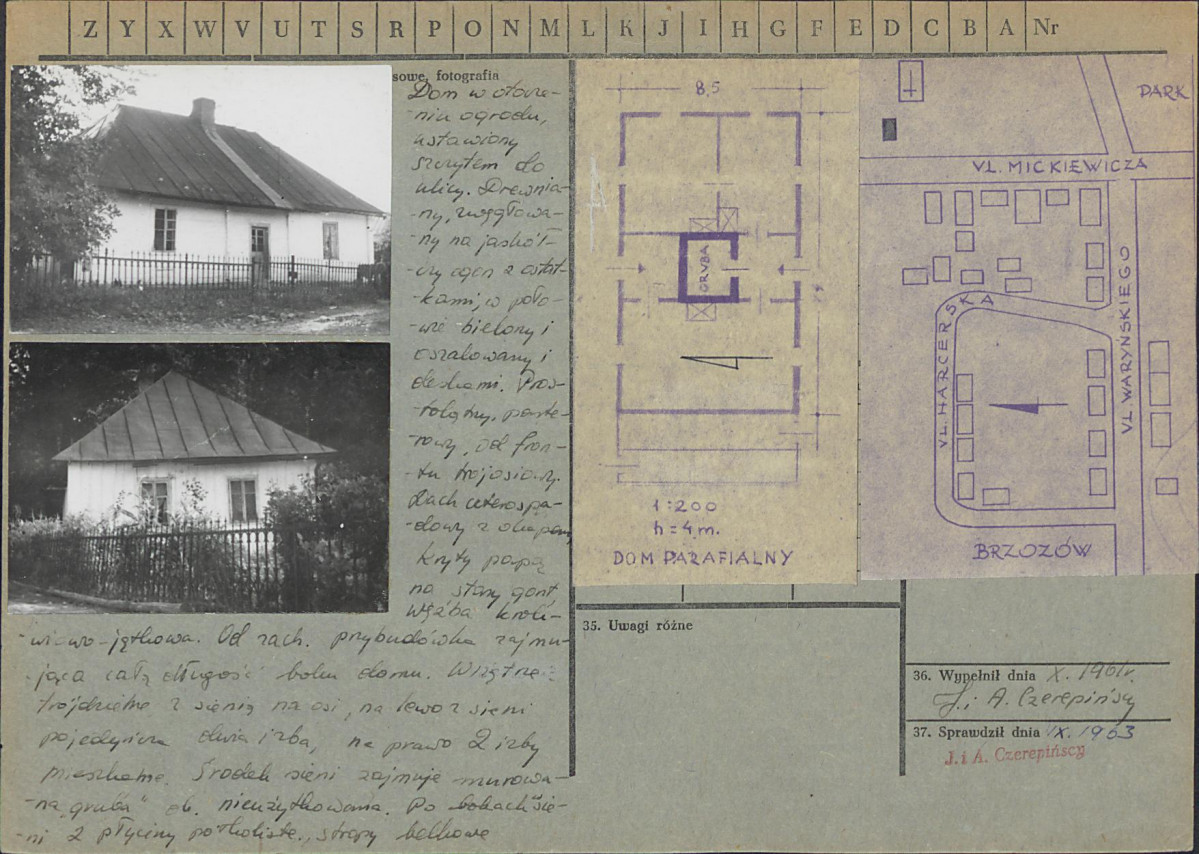 Z Y X W V U T S R P O N M L K J I H G F E D C B A Nr
sowe, fotografia
Dom w otocze-
-niu ogrodu,
ustawiony
szczytem do
ulicy. Drewnia-
-ny, zwęgłowa-
-ny na jaskół-
-czy ogon z ostat-
-kami, w poło-
-wie bielony i
oszalowany
deskami. Pros-
-tokątny, parte-
-rowy, od fron-
-tu trójosiowy.
Dach czterospa-
-dowy z okapem,
kryty papą
na stary gont
Więźba krok-
-wiowo-jętkowa. Od zach. przybudówka zajmu-
-jąca całą długość boku domu. Wnętrze
trójdzielne z sienią na osi, na lewo z sieni
pojedyńcza duża izba, na prawo 2 izby
mieszkalne. Środek sieni zajmuje murowa-
-na "gruba" ob. nieużytkowana. Po bokach sie-
-ni 2 płyciny półkoliste, stropy belkowe
8,5
GRUBA
1:200
h = 4 m.
DOM PARAFIALNY
PARK
UL. MICKIEWICZA
UL. HARCERSKA
UL. WARYŃSKIEGO
BRZOZÓW
35. Uwagi różne
36. Wypełnił dnia X. 1961r.
J. i A. Czerepińscy
37. Sprawdził dnia IX. 1963
J. i A. Czerepińscy